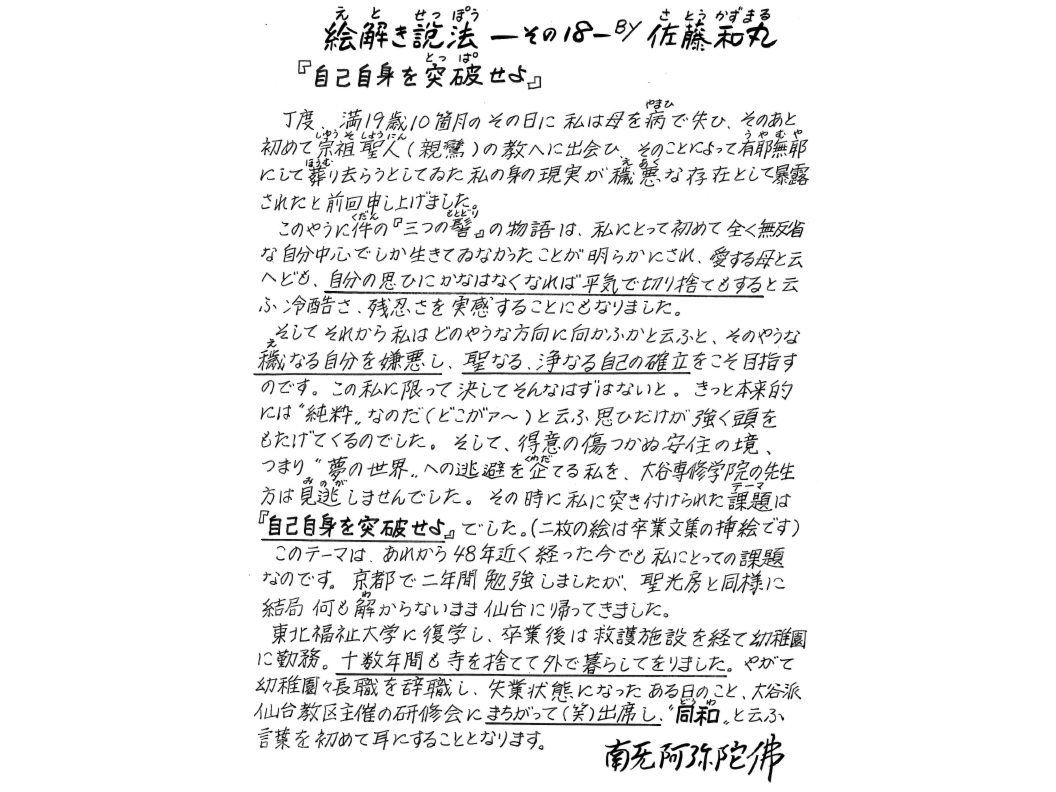 絵解き説法 ーその18ー BY 佐藤和丸
『自己自身を突破せよ』
丁度、満19歳10箇月のその日に私は母を病で失ひ、そのあと
初めて宗祖聖人(親鸞)の教へに出会ひ、そのことによって有耶無耶
にして葬り去らうとしてゐた私の身の現実が穢悪な存在として暴露
されたと前回申し上げました。
このやうに件の『三つの髻』の物語は、私にとって初めて全く無反省
な自分中心でしか生きてゐなかったことが明らかにされ、愛する母と云
へども、自分の思ひにかなはなくなれば平気で切り捨てもすると云
ふ冷酷さ、残忍さを実感することにもなりました。
そしてそれから私はどのやうな方向に向かふかと云ふと、そのやうな
穢なる自分を嫌悪し、聖なる、浄なる自己の確立をこそ目指す
のです。この私に限って決してそんなはずはないと。きっと本来的
には〝純粋〟なのだ(どこがァ〜)と云ふ思ひだけが強く頭を
もたげてくるのでした。そして、得意の傷つかぬ安住の境、
つまり〝夢の世界〟への逃避を企てる私を、大谷専修学院の先生
方は見逃しませんでした。その時に私に突き付けられた課題は
『自己自身を突破せよ』でした。(二枚の絵は卒業文集の挿絵です)
このテーマは、あれから48年近く経った今でも私にとっての課題
なのです。京都で二年間勉強しましたが、聖光房と同様に
結局何も解からないまま仙台に帰ってきました。
東北福祉大学に復学し、卒業後は救護施設を経て幼稚園
に勤務。十数年間も寺を捨てて外で暮らしてをりました。やがて
幼稚園々長職を辞職し、失業状態になったある日のこと、大谷派
仙台教区主催の研修会にまちがって(笑)出席し、〝同和〟と云ふ
言葉を初めて耳にすることとなります。
南无阿弥陀佛